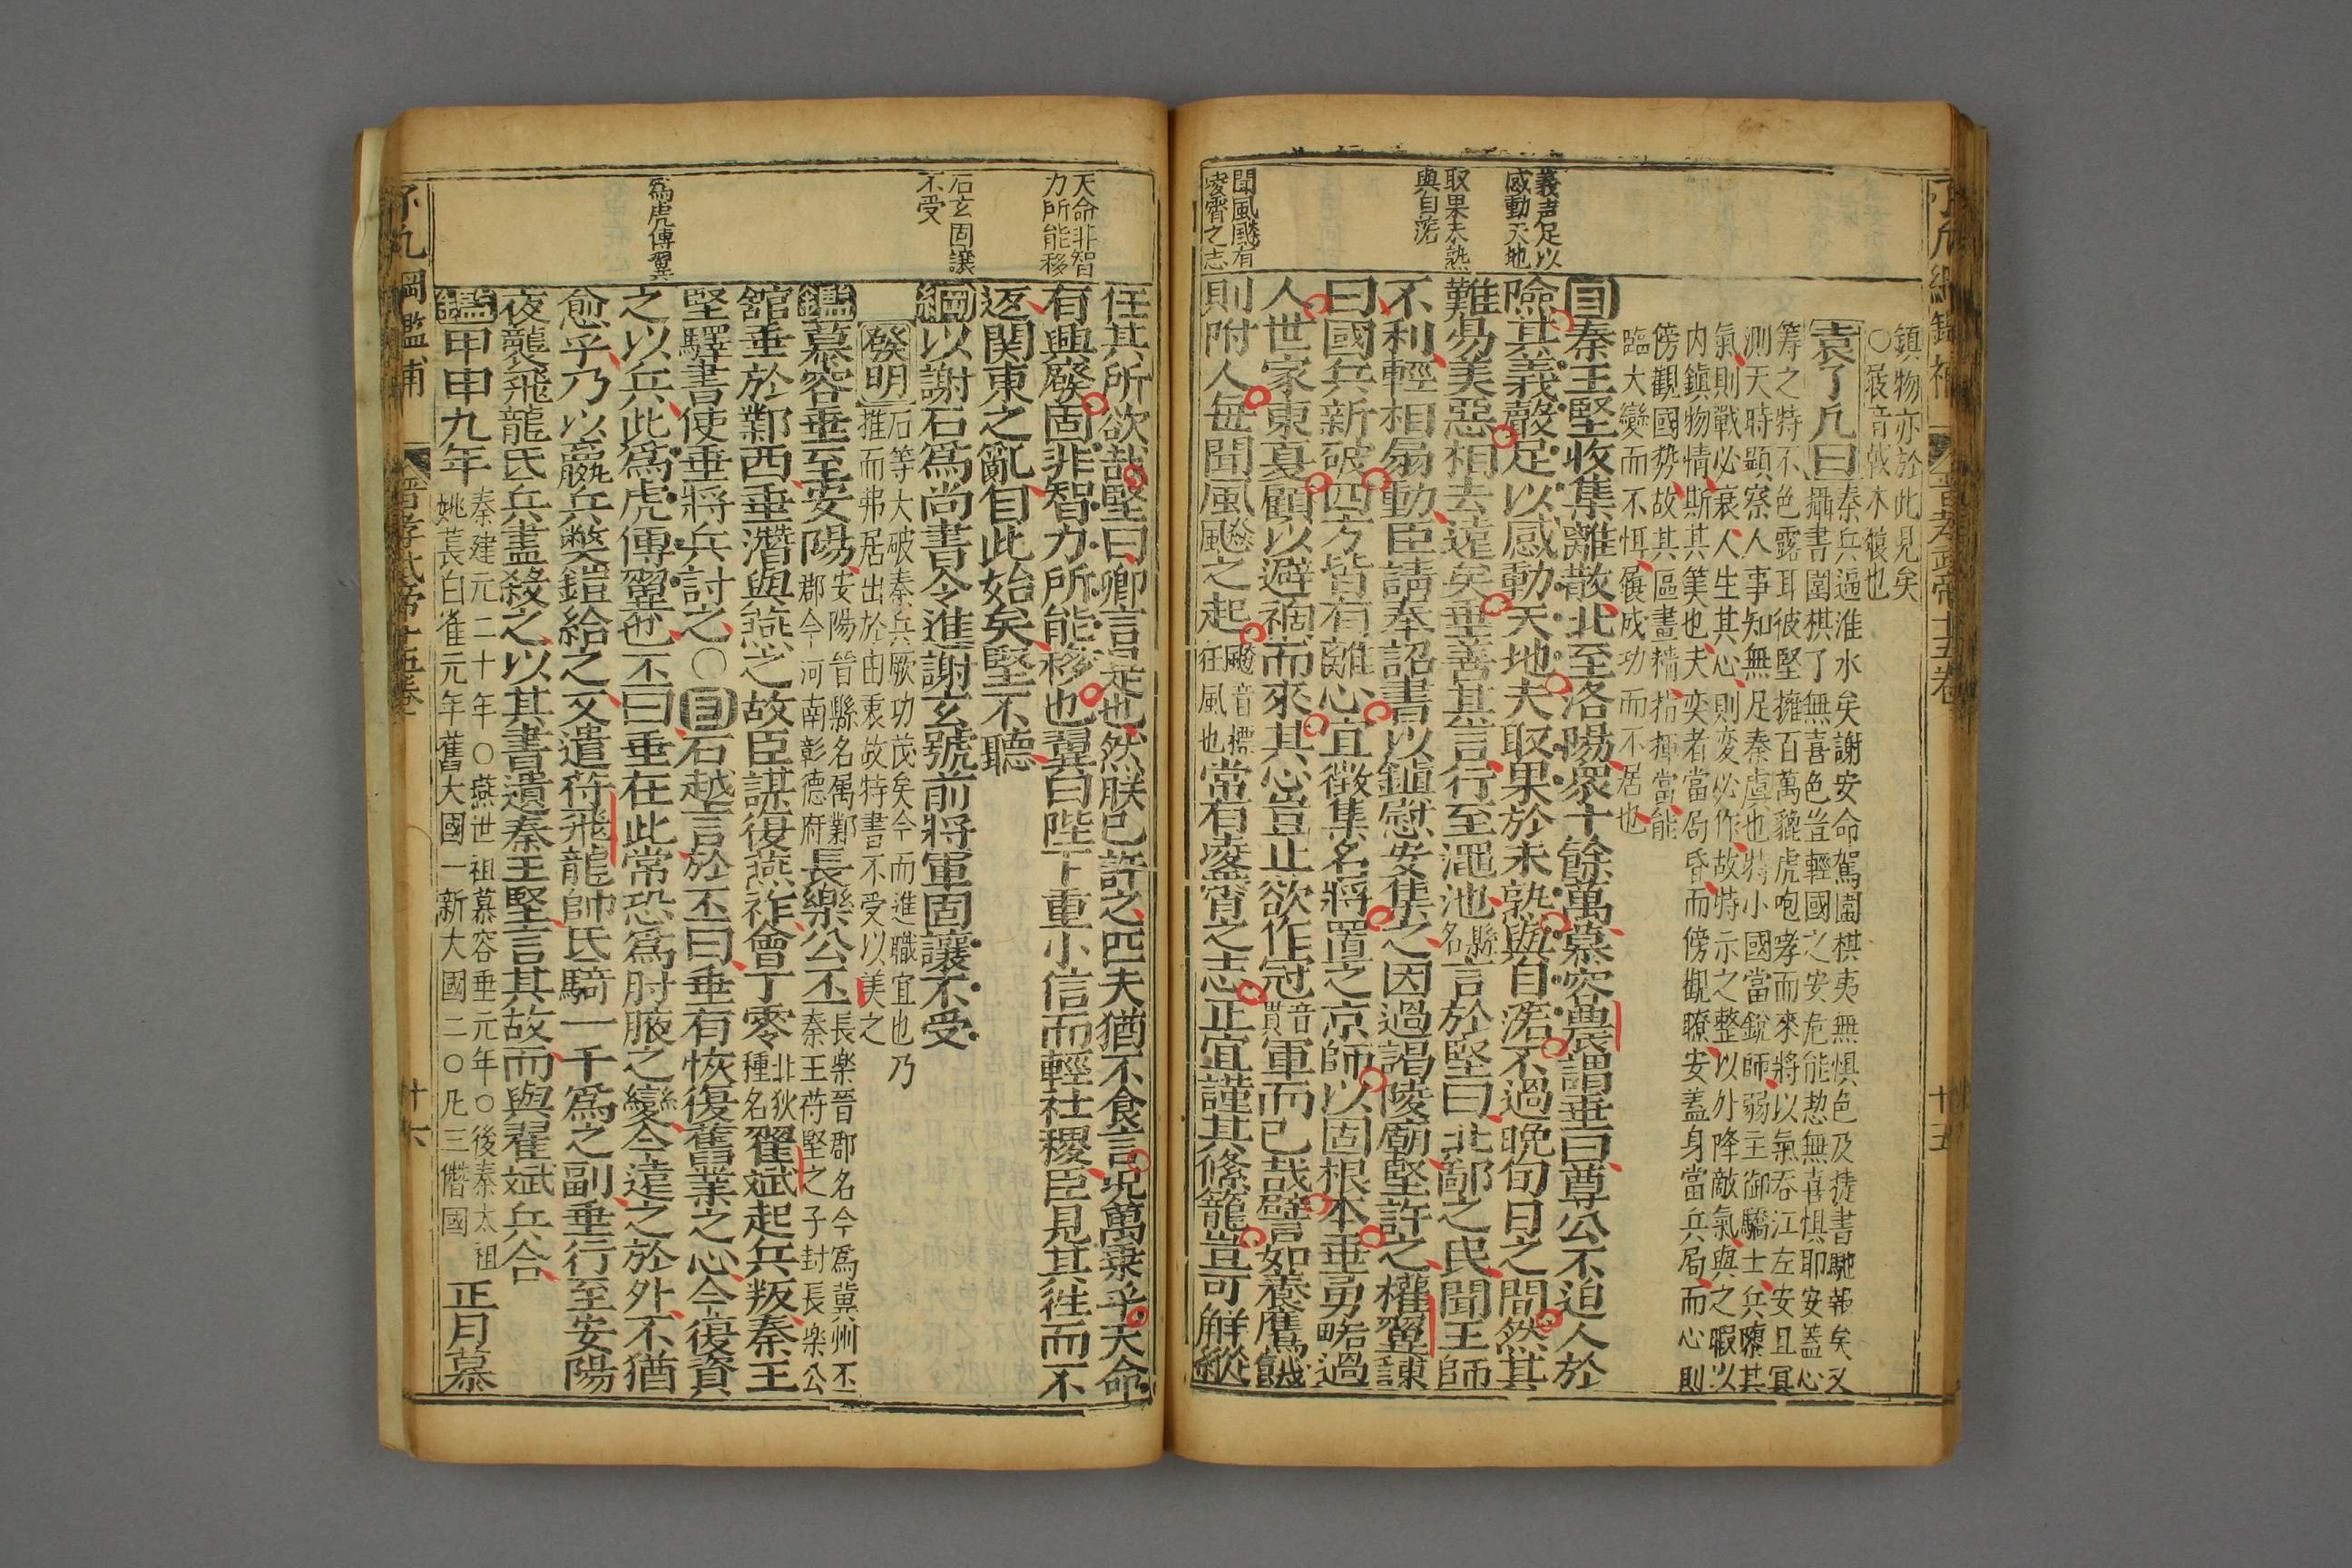 鎮物亦於此見矣
○屐音戟木履也
袁了凡曰
秦兵逼淮水矣謝安命駕圍棋夷無惧色及捷書馳報矣又
攝書圍棋了無喜色豈輕國之安危能恝無喜惧耶安蓋心
籌之特不色露耳彼堅擁百萬貔虎咆哮而來將以氣吞江左安且冥
測天時顯察人事知無足秦虞也特小國當銳師弱主御驕士兵凜其
氣則戰必衰人生其心則変必作故特示之整以外降敵氣與之暇以
内鎮物情斯其筭也夫奕者當局昏而傍觀瞭安蓋身當兵局而心則
傍觀國勢故其區畫精指揮當能
臨大變而不恇屐成功而不居也
目秦王堅收集離散北至洛陽衆十餘萬慕容農謂垂曰尊公不迫人於
險其義聲足以感動天地夫取果於未熟與自落不過晚旬日之間然其
難易美惡相去遠矣垂善其言行至澠池縣名言於堅曰北鄙之民聞王師
不利輕相扇動臣請奉詔書以鎮慰安集之因過謁陵廟堅許之權翼諫
曰國兵新破四方皆有離心宜徵集名將置之京師以固根本垂勇畧過
人世家東夏顧以避禍而來其心豈止欲作冠音貫軍而已哉譬如養鷹饑
則附人每聞風飈之起飈音標狂風也常有凌霄之志正宜謹其絛籠豈可觧縱
義声足以
感動天地
取果未熟
與自落
聞風飈有
凌霄之志
任其所欲哉堅曰卿言是也然朕已許之匹夫猶不食言况萬乗乎天命
有興廢固非智力所能移也翼曰陛下重小信而輕社稷臣見其徃而不
返関東之亂自此始矣堅不聽
綱以謝石爲尚書令進謝玄號前將軍固讓不受
發明
石等大破秦兵厥功茂矣今而進職宜也乃
推而弗居出於由衷故特書不受以美之
鑑慕容垂至安陽安陽晉縣名属鄴郡今河南彰德府長樂公丕長楽晋郡名今爲冀州丕秦王苻堅之子封長楽公
舘垂於鄴西垂潛與燕之故臣謀復燕祚會丁零北狄種名翟斌起兵叛秦王
堅驛書使垂將兵討之○目石越言於丕曰垂有恢復舊業之心今復資
之以兵此爲虎傳翼也丕曰垂在此常恐爲肘腋之變今遠之於外不猶
愈乎乃以羸兵弊鎧給之又遣苻飛龍帥氐騎一千爲之副垂行至安陽
夜襲飛龍氐兵盡殺之以其書遺秦王堅言其故而與翟斌兵合
鑑甲申九年秦建元二十年○燕世祖慕容垂元年○後秦太祖姚萇白雀元年舊大國一新大國二○凡三僭國正月慕
天命非智
力所能移
石玄固讓
不受
爲虎傳翼
了凡綱鑑補
晉孝武帝十五卷
十五
了凡綱鑑補
晉孝武帝十五卷
十六